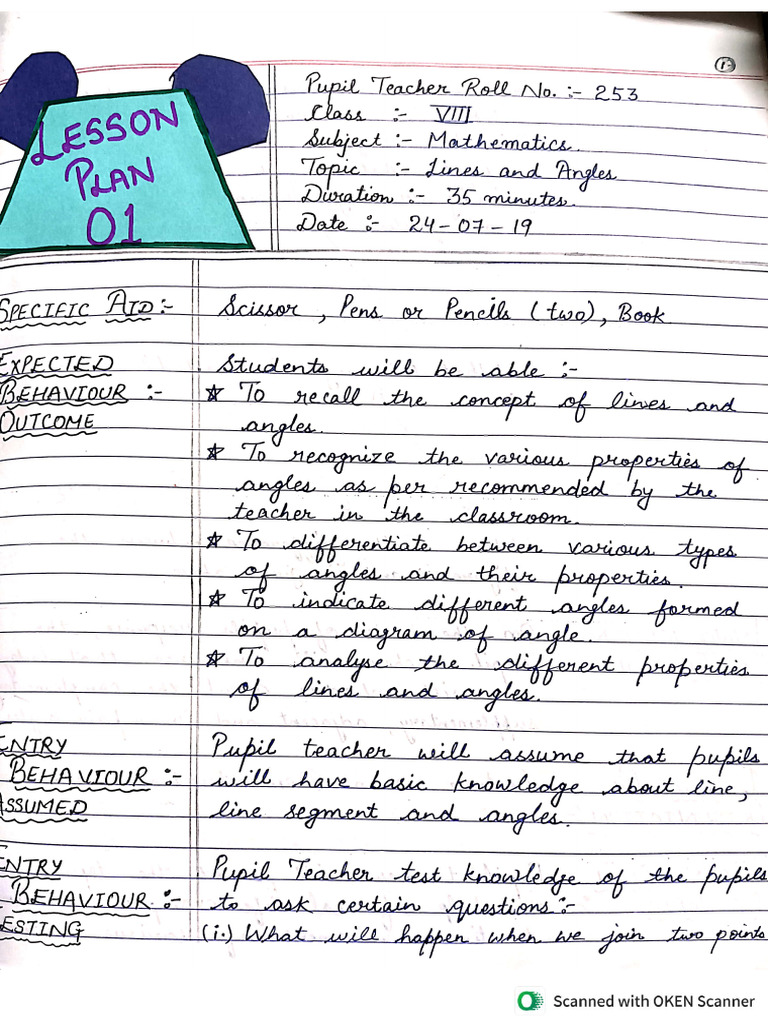 1.
LESSON
PLAN
01
Pupil Teacher Roll No. :- 253
Class :- VIII
Subject :- Mathematics.
Topic :- Lines and Angles
Duration :- 35 minutes.
Date :- 24-07-19
SPECIFIC AID:- Scissor, Pens or Pencils (two), Book
EXPECTED Students will be able :-
BEHAVIOUR :- ☆ To recall the concept of lines and
OUTCOME angles.
☆ To recognize the various properties of
angles as per recommended by the
teacher in the classroom.
☆ To differentiate between various types
of angles and their properties.
☆ To indicate different angles formed
on a diagram of angle.
☆ To analyse the different properties
of lines and angles.
ENTRY Pupil teacher will assume that pupils
BEHAVIOUR :- will have basic knowledge about line,
ASSUMED line segment and angles.
ENTRY Pupil Teacher test knowledge of the pupils
BEHAVIOUR :- to ask certain questions:-
TESTING (i.) What will happen when we join two points
Scanned with OKEN Scanner